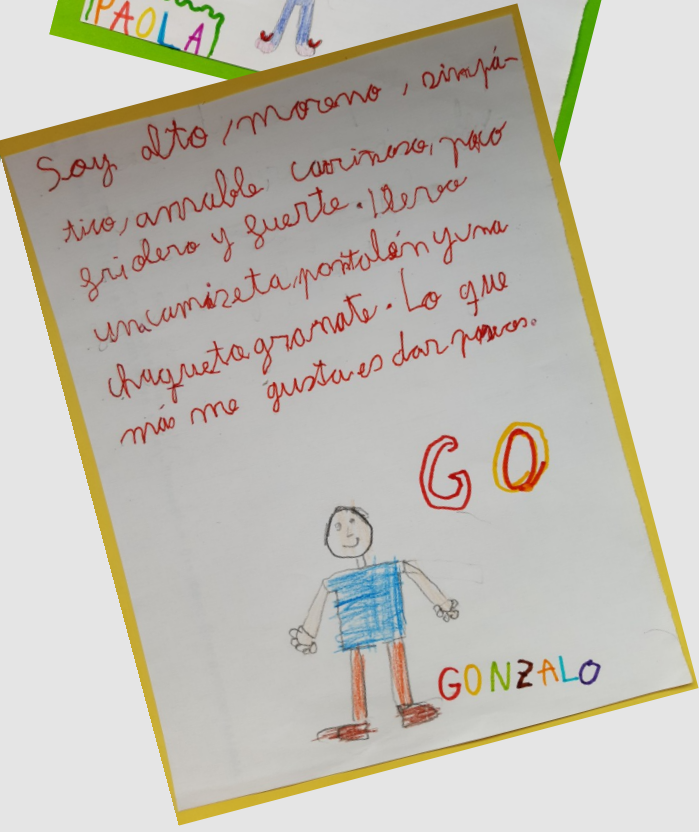 PAOLA
Soy alto, moreno, simpá-
tico, amable, cariñoso, poco
gridero y fuerte. Llevo
una camizeta, pantalón y una
chaqueta granate. Lo que
más me gusta es dar paseos.
GO
GONZALO